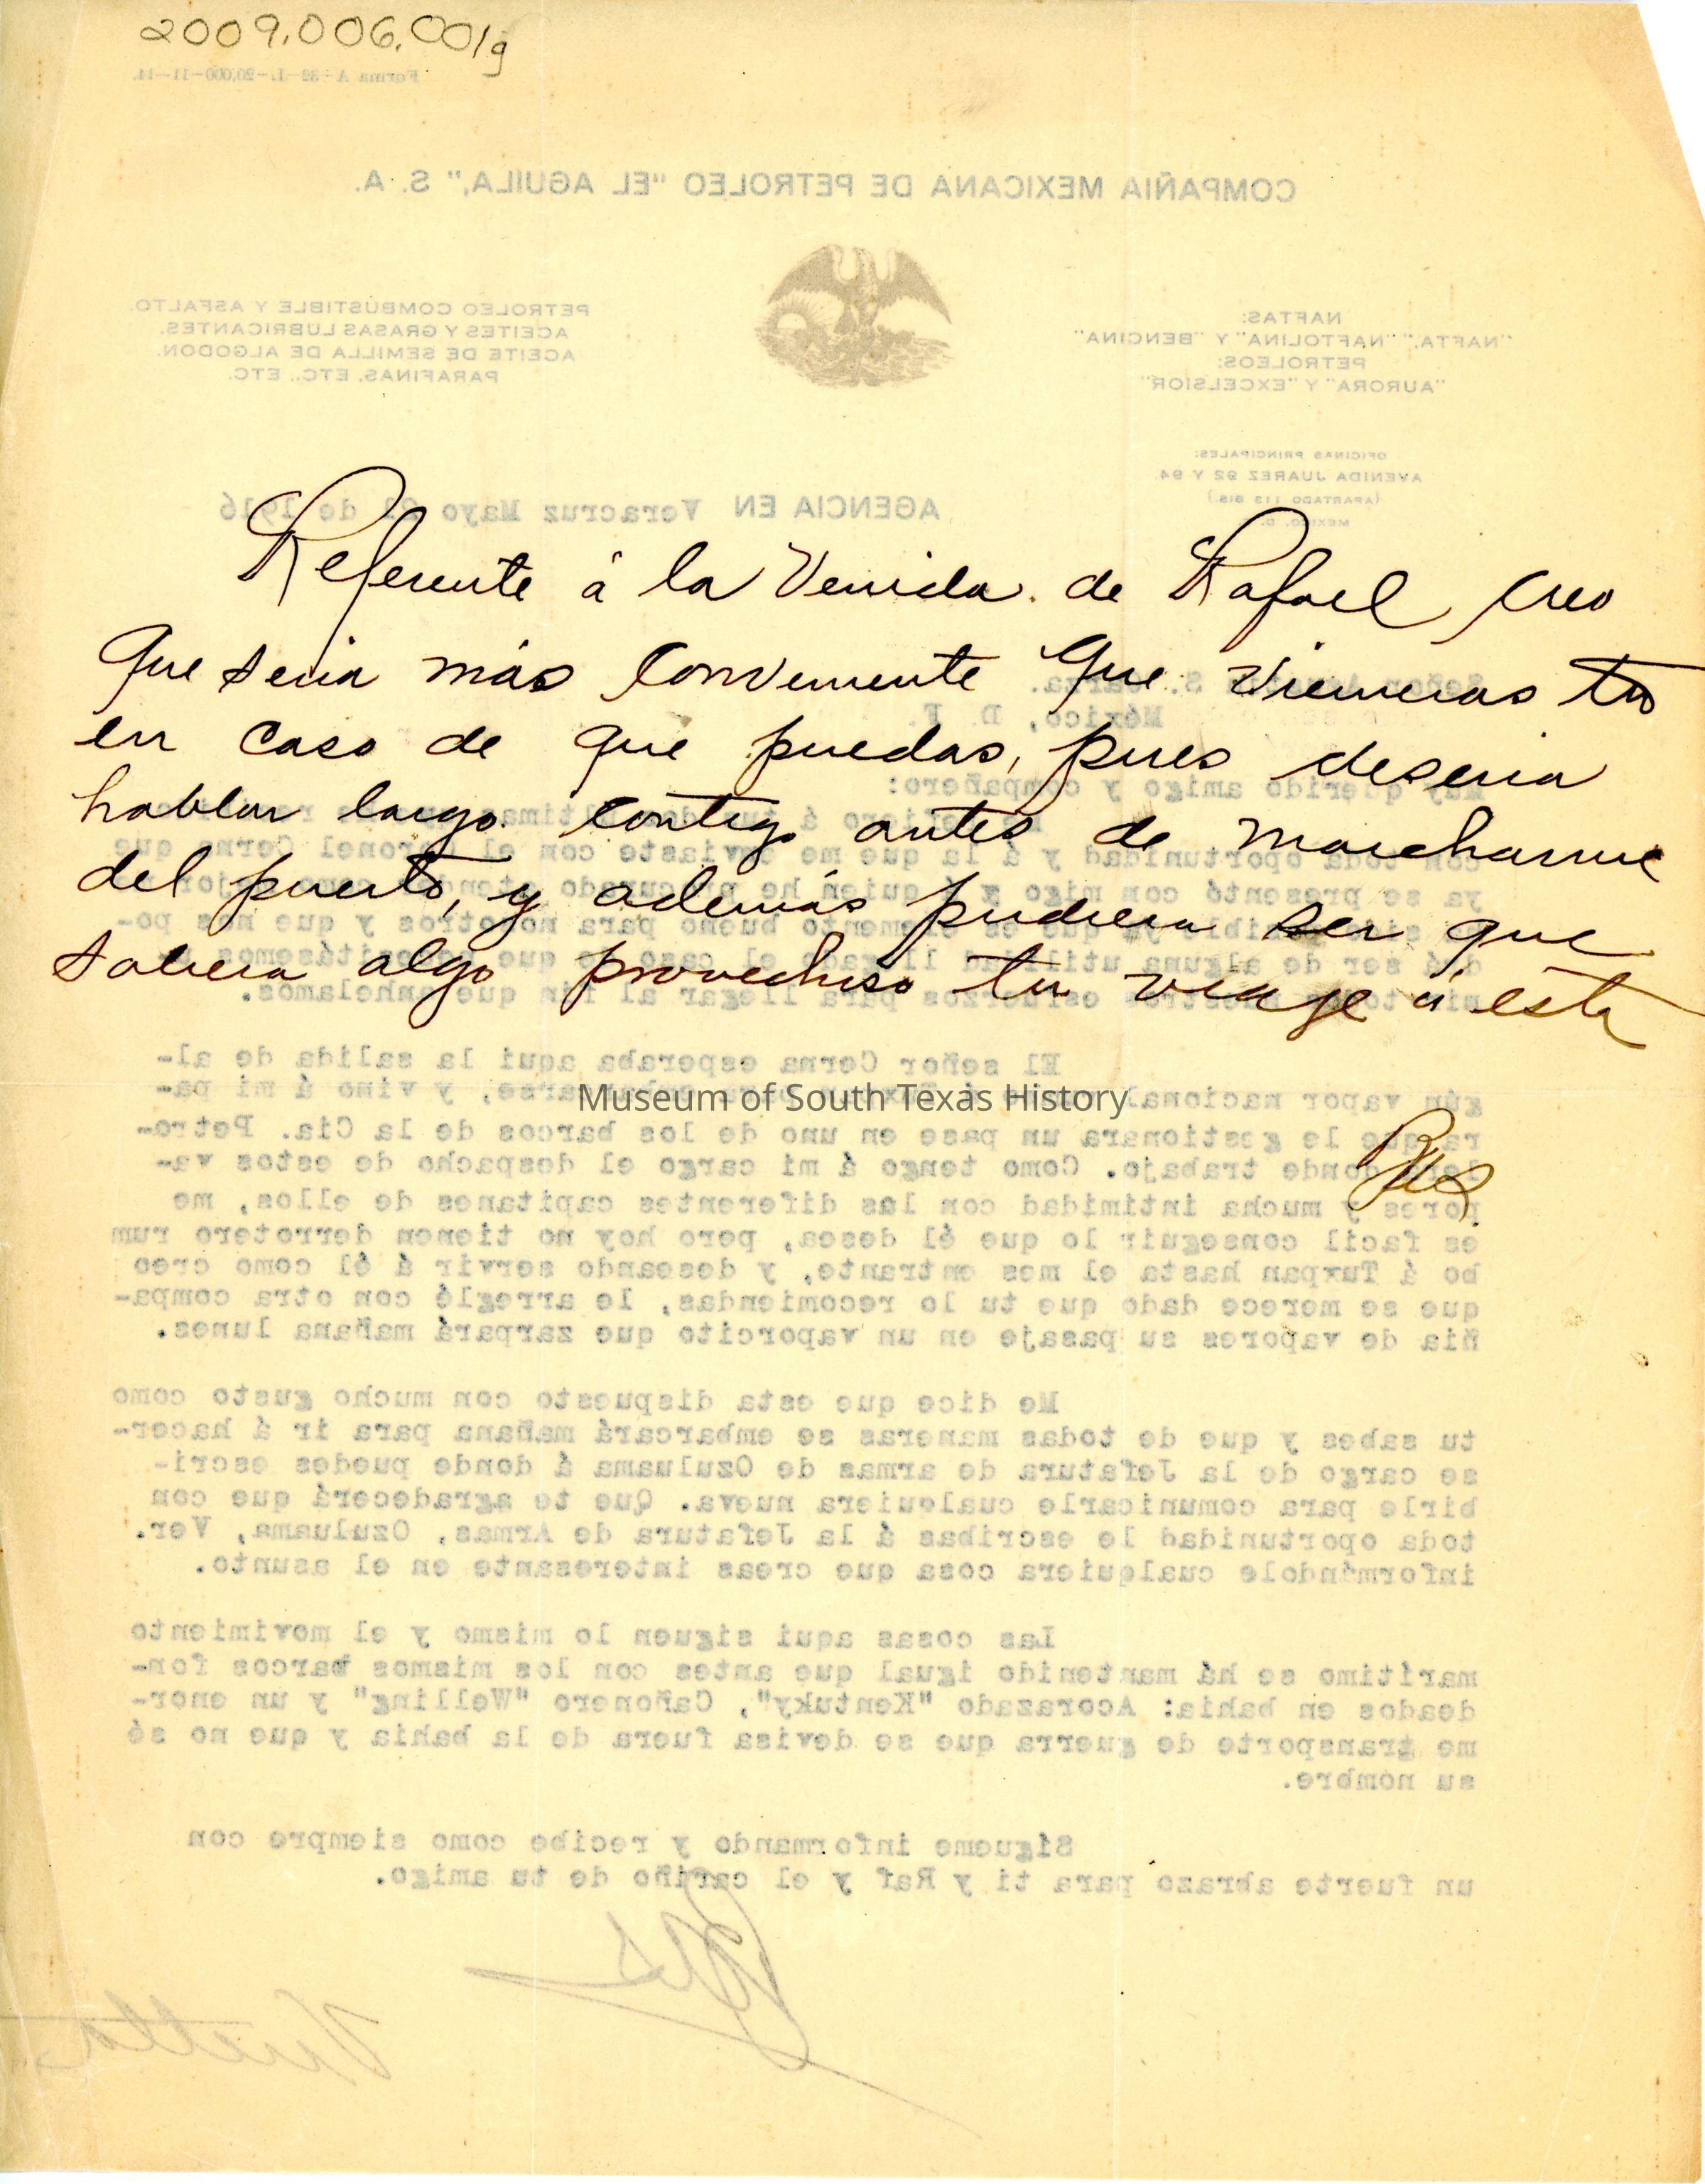 2009.006.001g
Forma A-39-L-20,000-11-14.
COMPAÑIA MEXICANA DE PETROLEO "EL AGUILA," S. A.
NAFTAS:
"NAFTA," "NAFTOLINA" Y "BENCINA"
PETROLEOS:
"AURORA" Y "EXCELSIOR"
PETROLEO COMBUSTIBLE Y ASFALTO.
ACEITES Y GRASAS LUBRICANTES.
ACEITE DE SEMILLA DE ALGODON.
PARAFINAS, ETC., ETC.
OFICINAS PRINCIPALES:
AVENIDA JUAREZ 92 Y 94
(APARTADO 113 BIS.)
MEXICO, D.
AGENCIA EN Veracruz Mayo de 1916
Referente á la Venida de Rafael, creo
que seria más conveniente que vinieras tu
en caso de que puedas, pues deseria
hablar largo contigo antes de marcharme
del puerto, y además pudiera ser que
saliera algo provechoso tu viaje á esta
Señor S. Garza.
México, D. F.
Muy querido amigo y compañero:
á tu última
con toda oportunidad y á la que me enviaste con el Coronel Cerna que
ya se presentó con migo y á quien he procurado
elemento bueno para nosotros y que nos po-
drá ser de alguna utilidad
esfuerzos para llegar al fin que anhelamos.
El señor Cerna esperaba aqui la salida de al-
gún vapor nacional á y vino á mi pa-
Museum of South Texas History
ra que le gestionara un pase en uno de los barcos de la Cia. Petro-
lera donde trabajo. Como tengo á mi cargo el despacho de estos va-
pores y mucha intimidad con los diferentes capitanes de ellos, me
es facil conseguir lo que él desea, pero hoy no tienen derrotero rum
bo á Tuxpan hasta el mes entrante, y deseando servir á él como creo
que se merece dado que tu lo recomiendas, le arreglé con otra compa-
ñia de vapores su pasaje en un vaporcito que zarpará mañana lunes.
Me dice que esta dispuesto con mucho gusto como
tu sabes y que de todas maneras se embarcará mañana para ir á hacer-
se cargo de la Jefatura de armas de Ozuluama á donde puedes escri-
birle para comunicarle cualquiera nueva. Que te agradecerá que con
toda oportunidad le escribas á la Jefatura de Armas, Ozuluama, Ver.
informándole cualquiera cosa que creas interesante en el asunto.
Las cosas aqui siguen lo mismo y el movimiento
marítimo se há mantenido igual que antes con los mismos barcos fon-
deados en bahia: Acorazado "Kentuky", Cañonero "Welling" y un enor-
me transporte de guerra que se devisa fuera de la bahia y que no sé
su nombre.
Sígueme informando y recibe como siempre con
un fuerte abrazo para ti y Raf y el cariño de tu amigo.
Vuelta